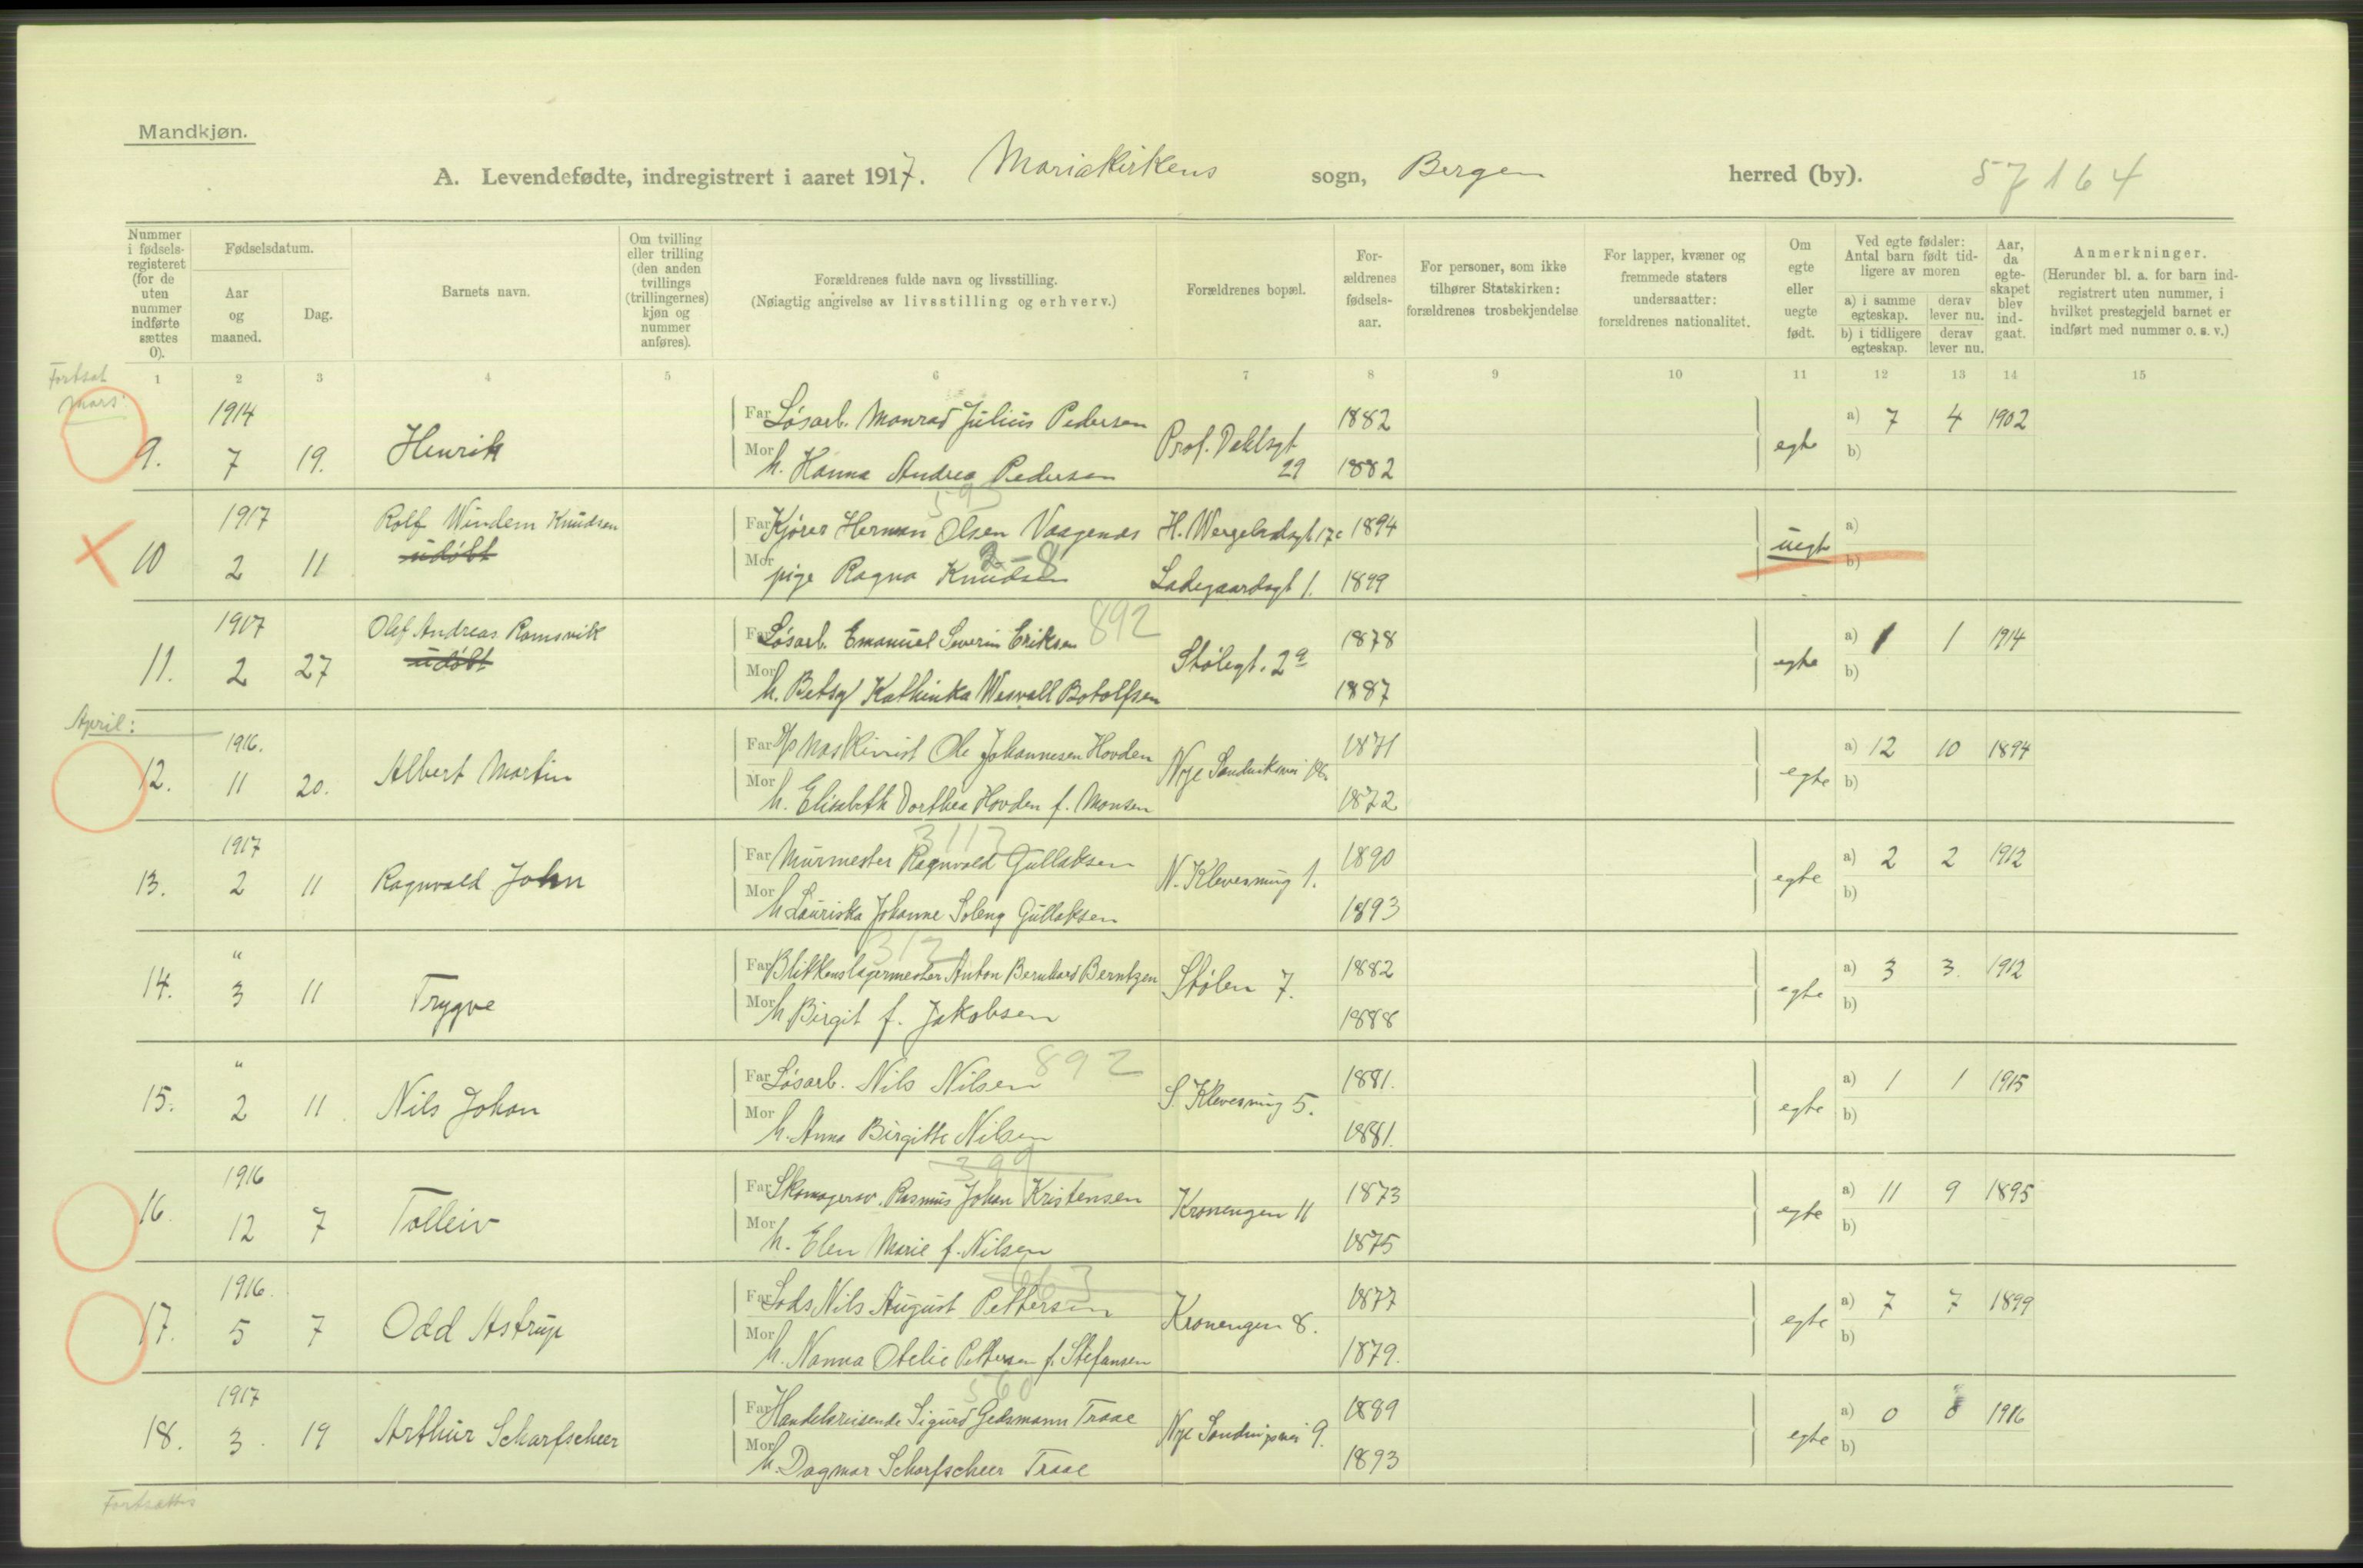 Mandkjøn.
A. Levendefødte, indregistrert i aaret 1917. Mariakirkens sogn, Bergen herred (by). 57164
Nummer i fødsels-registeret (for de uten nummer indførte sættes 0).
Fødselsdatum.
Aar og maaned.
Dag.
Barnets navn.
Om tvilling eller trilling (den anden tvillings (trillingernes) kjøn og nummer anføres).
Forældrenes fulde navn og livsstilling.
(Nøiagtig angivelse av livsstilling og erhverv.)
Forældrenes bopæl.
For-ældrenes fødsels-aar.
For personer, som ikke tilhører Statskirken: forældrenes trosbekjendelse
For lapper, kvæner og fremmede staters undersaatter: forældrenes nationalitet.
Om egte eller uegte født.
Ved egte fødsler: Antal barn født tid-ligere av moren
a) i samme egteskap. derav lever nu.
b) i tidligere egteskap. derav lever nu.
Aar, da egte-skapet blev ind-gaat.
Anmerkninger.
(Herunder bl. a. for barn ind-registrert uten nummer, i hvilket prestegjeld barnet er indført med nummer o. s. v.)
1 2 3 4 5 6 7 8 9 10 11 12 13 14 15
Fortsat Mars:
1914 Far Løsarb. Monrad Julius Pedersen 1882 a) 7 4 1902
9. 7 19. Henrik Prof. Dahlsgt 29 egte b)
Mor h. Hanna Andrea Pedersen 1882
1917 Rolf Windem Knudsen Far Kjører Herman Olsen Vaagenes H. Wergelandsgt 17c 1894 a)
10 2 11 udøbt uegte b)
Mor pige Ragna Knudsen 2-8 Ladegaardsgt 1. 1899
1917 Olef Andreas Ramsvik Far Løsarb. Emanuel Severin Eriksen 892 1878 a) 1 1 1914
11. 2 27 udøbt Stølegt. 2a egte b)
Mor h. Betsy Kathinka Wesvall Botolfsen 1887
April:
1916. Far Maskinist Ole Johannesen Hovden 1871 a) 12 10 1894
12. 11 20. Albert Martin Nye Sandviksvei egte b)
Mor h. Elisabeth Dorthea Hovden f. Monsen 1872
1917 3113
Far Murmester Ragnvald Gullaksen 1890 a) 2 2 1912
13. 2 11 Ragnvald John N. Kleversmug 1. egte b)
Mor h Lauriska Johanne Soleng Gullaksen 1893
" 312
Far Blikkenslagermester Anton Bernhard Berntzen 1882 a) 3 3. 1912
14. 3 11 Trygve Stølen 7. egte b)
Mor h Birgit f. Jakobsen 1888
" Far Løsarb. Nils Nilsen 892 1881. a) 1 1 1915
15. 2 11 Nils Johan S. Kleversmug 5. egte b)
Mor h. Anna Birgitte Nilsen 1881.
1916 399
Far Skomagersv. Rasmus Johan Kristensen 1873 a) 11 9 1895
16. 12 7 Tolleiv Kronengen 11 egte b)
Mor h. Elen Marie f. Nilsen 1875
1916. 663
Far Lods Nils August Pettersen 1877 a) 7 7 1899
17. 5 7 Odd Astrup Kronengen 8. egte b)
Mor h. Nanna Otelie Pettersen f. Stefansen 1879.
1917 560
Far Handelsreisende Sigurd Gedsmann Traae 1889 a) 0 0 1916
18. 3. 19 Arthur Scharfscheer Nye 9. egte b)
Mor h. Dagmar Scharfscheer Traae 1893
Fortsættes